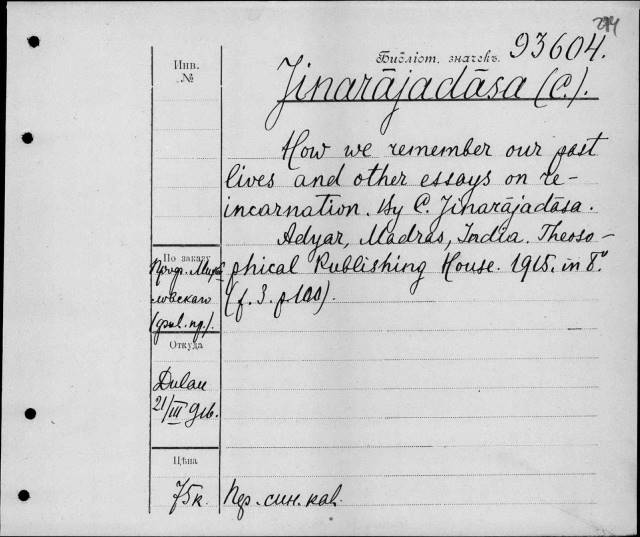 294
Библіот. значекъ. 93604.
Инв.
№
Jinarājadāsa (C.).
How we remember our past
lives and other essays on re-
incarnation. By C. Jinarājadāsa.
Adyar, Madras, India. Theoso-
phical Publishing House. 1915. in 8°
По заказу
ловскаго
Откуда
Dulau
21/III 916.
Цѣна
75к.